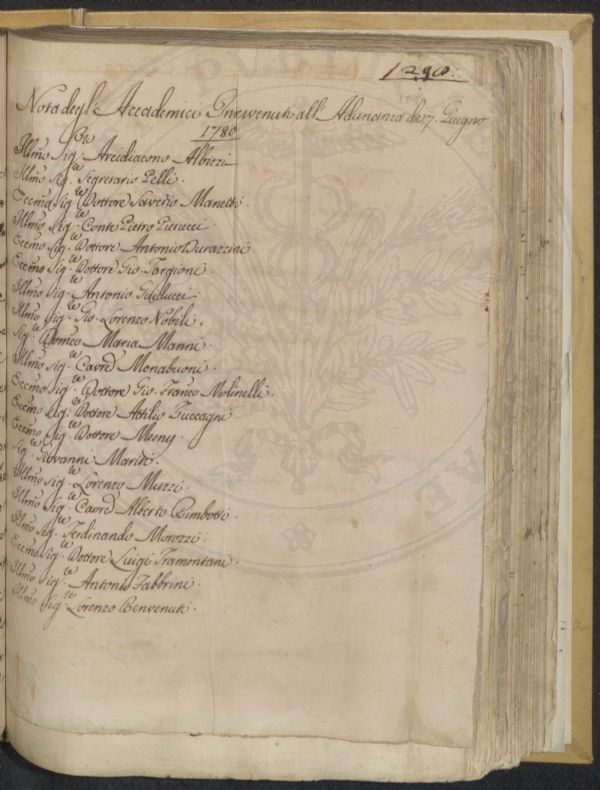 1290.
Nota degl'Accademici Intervenuti all'Adunanza de 7. Giugno
1780
Illmo Sig.re Arcidiacono Albizzi
Illmo Sig.re Segretario Pelli.
Eccmo Sig.re Dottore Saverio Manetti
Illmo Sig.re Conte Pietro Pierucci
Eccmo Sig.re Dottore Antonio Durazzini.
Eccmo Sig.re Dottore Gio. Targioni.
Illmo Sig.re Antonio
Illmo Sig.re Gio. Lorenzo Nobili.
Sig.re Domco Maria Manni.
Illmo Sig.re Cavre Menabuoni.
Eccmo Sig.re Dottore Gio. Franco Molinelli.
Eccmo Sig.re Dottore Attilio Zuccagni
Eccmo Sig.re Dottore Mesny.
Sig.re Giovanni Mariti.
Illmo Sig.re Lorenzo Muzzi.
Illmo Sig.re Cavre Alberto Rimbotti.
Illmo Sig.re Ferdinando Morozzi.
Eccmo Sig.re Dottore Luigi Tramontani.
Illmo Sig.re Antonio Fabbrini.
Illmo Sig.re Lorenzo Benvenuti.